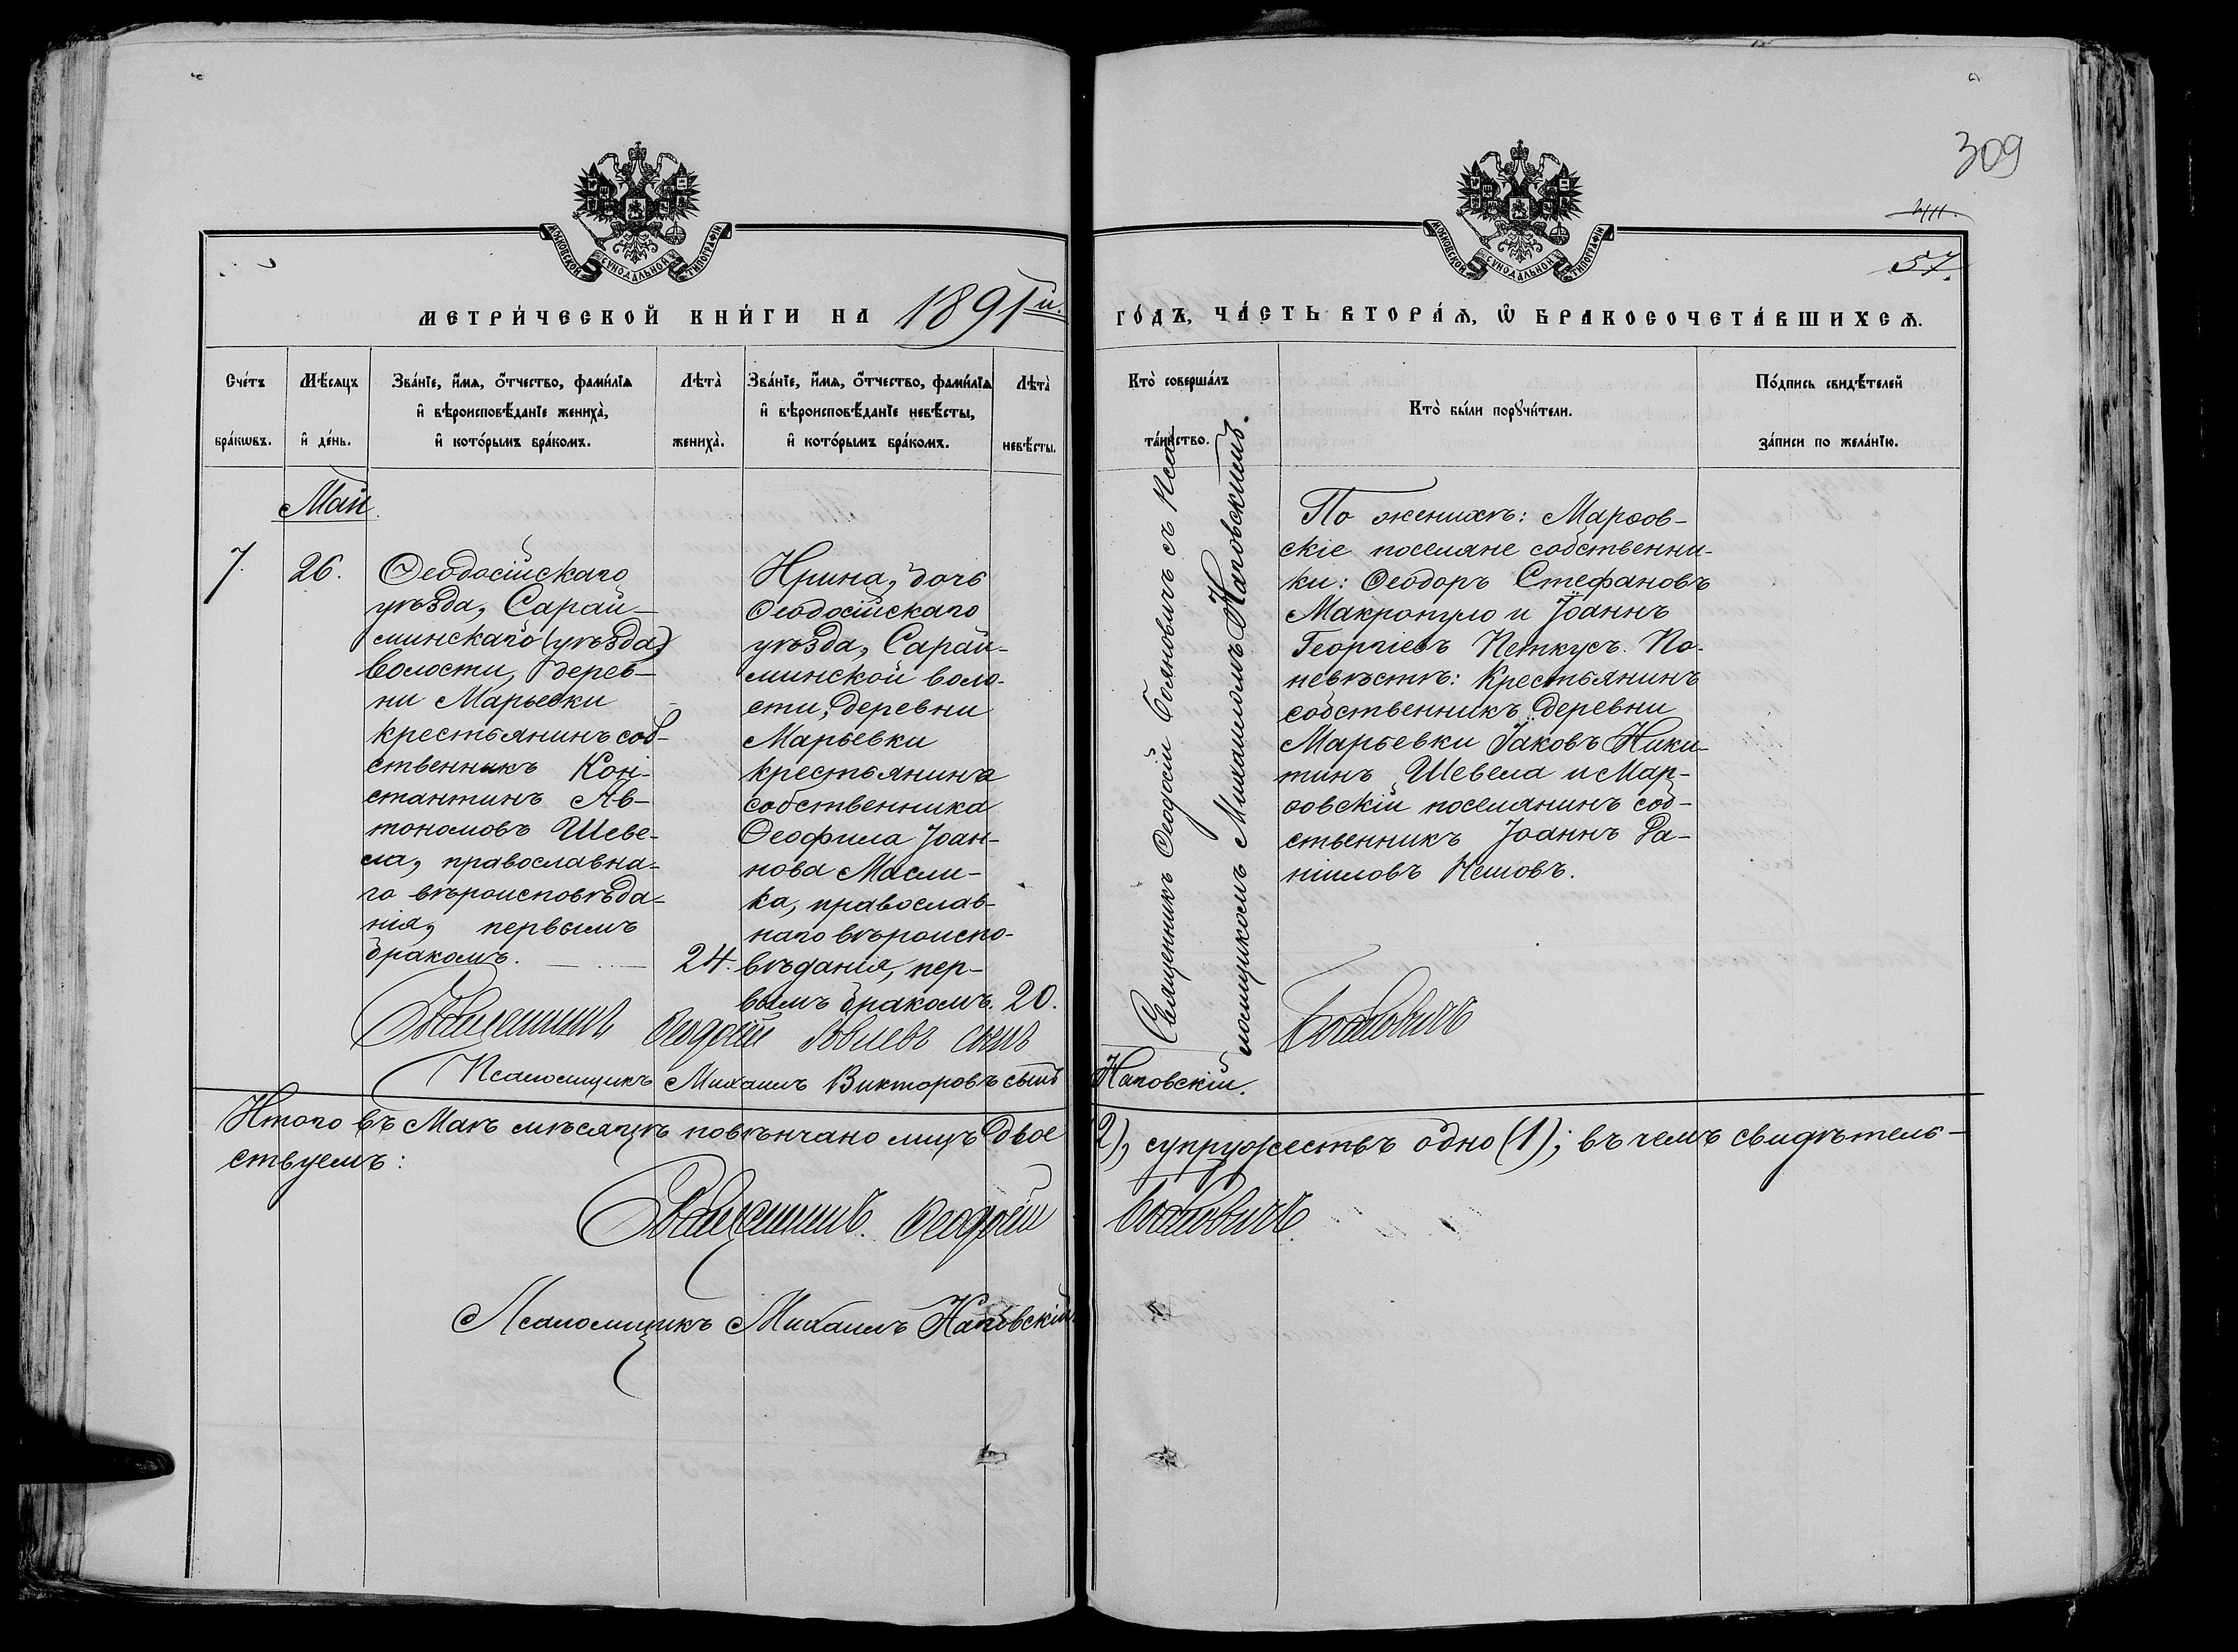 309
57.
МОСКОВСКОЙ СУНОДАЛЬНОЙ ТИПОГРАФІИ
МОСКОВСКОЙ СУНОДАЛЬНОЙ ТИПОГРАФІИ
МЕТРИ́ЧЕСКОЙ КНИ́ГИ НА 1891й.
ГО́ДЪ, ЧА́СТЬ ВТОРА́Ѧ, Ѡ҆ БРАКОСОЧЕТА́ВШИХСѦ.
Сче́тъ
бра́кѡвъ.
Мѣ́сяцъ
и҆ де́нь.
Зва́нїе, и҆́мѧ, о҆́тчество, фами́лїѧ
и҆ вѣроисповѣ́данїе жениха̀,
и҆ кото́рымъ бра́комъ.
Лѣта̀
жениха̀.
Зва́нїе, и҆́мѧ, о҆́тчество, фами́лїѧ
и҆ вѣроисповѣ́данїе невѣ́сты,
и҆ кото́рымъ бра́комъ.
Лѣта̀
невѣ́сты.
Кто̀ соверша́лъ
та́инство.
Кто̀ бы́ли порꙋчи́тели.
По́дпись свидѣ́телей
за́писи по жела́нїю.
Май.
7.
26.
Ѳеодосійскаго
уѣзда, Сарай-
минскаго (уѣзда)
волости, дерев-
ни Марьевки
крестьянинъ соб-
ственникъ Кон-
стантинъ Ав-
тономовъ Шеве-
ла, православна-
го вѣроисповѣда-
нія, первымъ
бракомъ.
24.
Ирина, дочь
Ѳеодосійскаго
уѣзда, Сарай-
минской воло-
сти, деревни
Марьевки
крестьянина
собственника
Ѳеофила Іоан-
нова Масли-
ка, православ-
наго вѣроиспо-
вѣданія, пер-
вымъ бракомъ.
20.
Священникъ Ѳеодосій Боянович съ Пса-
ломщикомъ Михаиломъ Наповскимъ.
По женихѣ: Марѳов-
скіе поселяне собственни-
ки: Ѳеодоръ Стефановъ
Макропуло и Іоаннъ
Георгіевъ Петкусъ. По
невѣстѣ: Крестьянинъ
собственникъ деревни
Марьевки Іаковъ Ники-
тинъ Шевела и Мар-
ѳовскій поселянинъ соб-
ственникъ Іоаннъ Да-
ніиловъ Пешовъ.
Священникъ Ѳеодосій сынъ Бояновичъ
Псаломщикъ Михаилъ Викторовъ сынъ Наповскій.
Итого въ Маѣ мѣсяцѣ повѣнчано лицъ двое 2), супружествъ одно (1); въ чемъ свидѣтель-
ствуемъ:
Священникъ Ѳеодосій Бояновичъ.
Псаломщикъ Михаилъ Наповскій